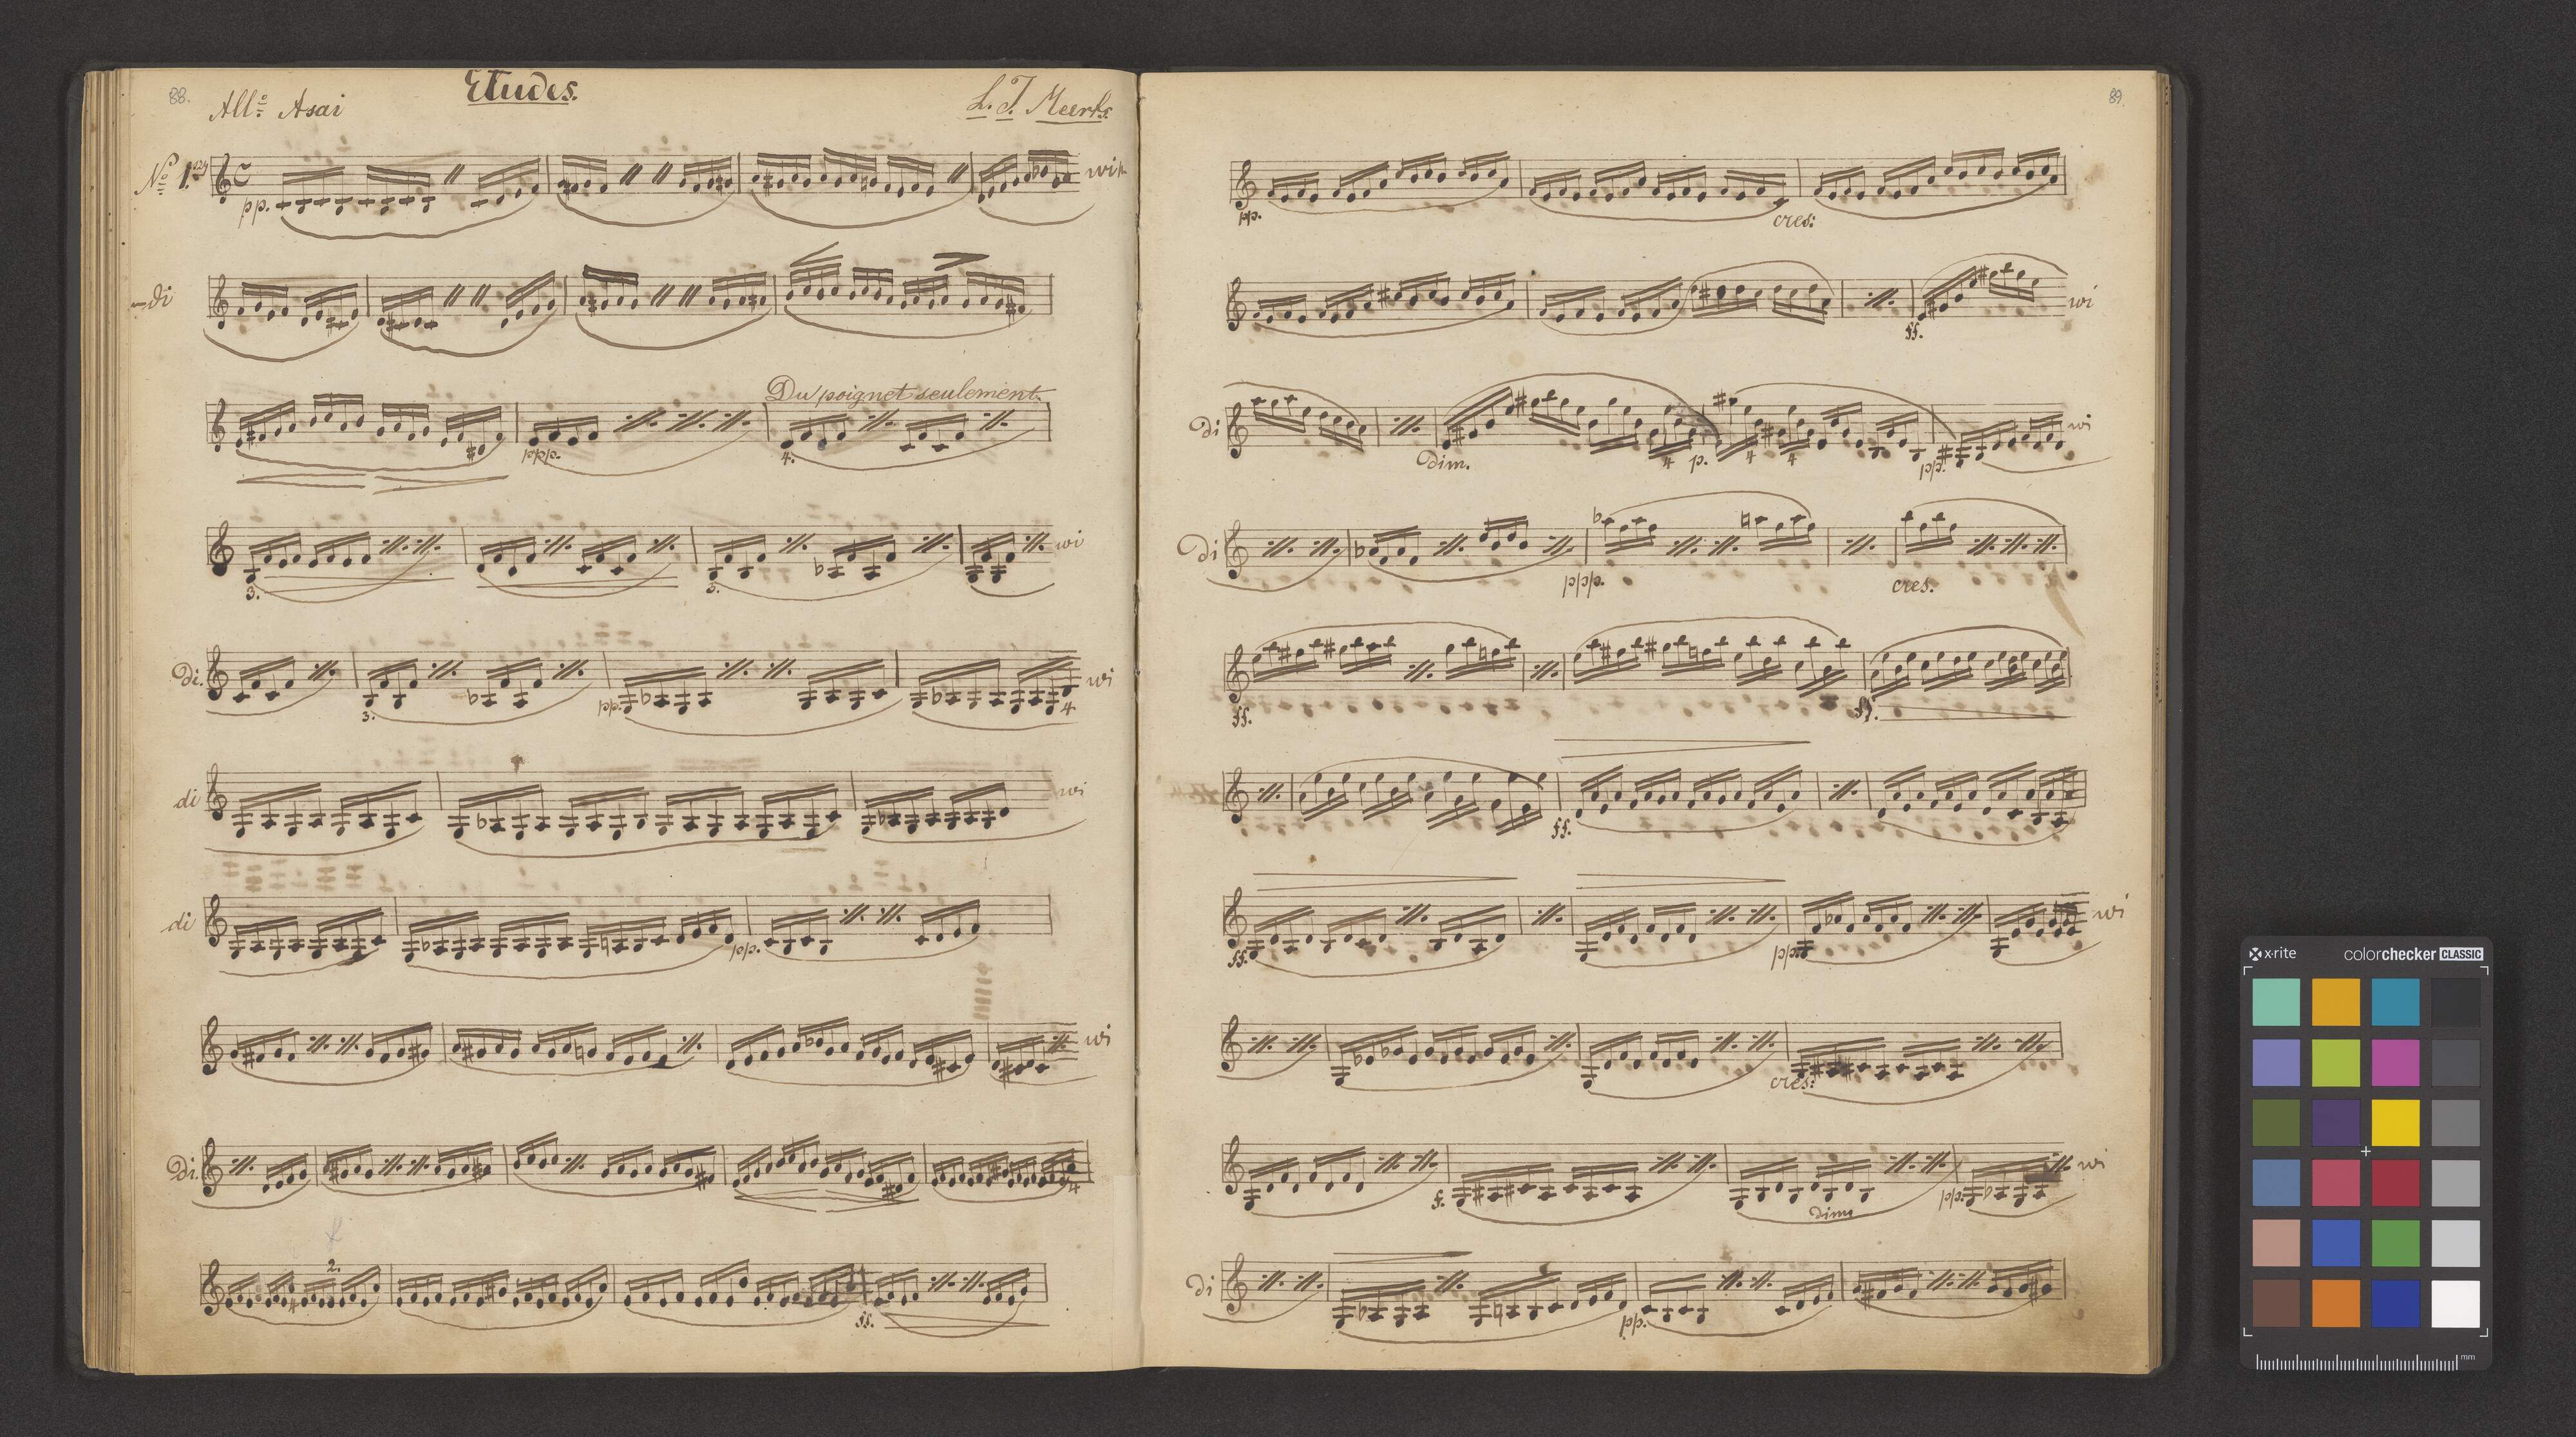 88.
Etudes.
All:o Asai
L. J. Meerts.
No 1.
pp.
wi
di
Du poignet seulement.
ppp.
4.
3.
3.
wi
di.
3.
pp.
4
wi
di
wi
di
pp.
wi
Di.
4
2.
ff.
89.
pp.
cres:
ff.
wi
di
dim.
4
p.
4
4
pp.
wi
Di
ppp.
cres.
ff.
ff.
ff.
ff.
pp.
wi
cres:
f.
dim
pp.
wi
di
pp.
x-rite
colorchecker CLASSIC
mm